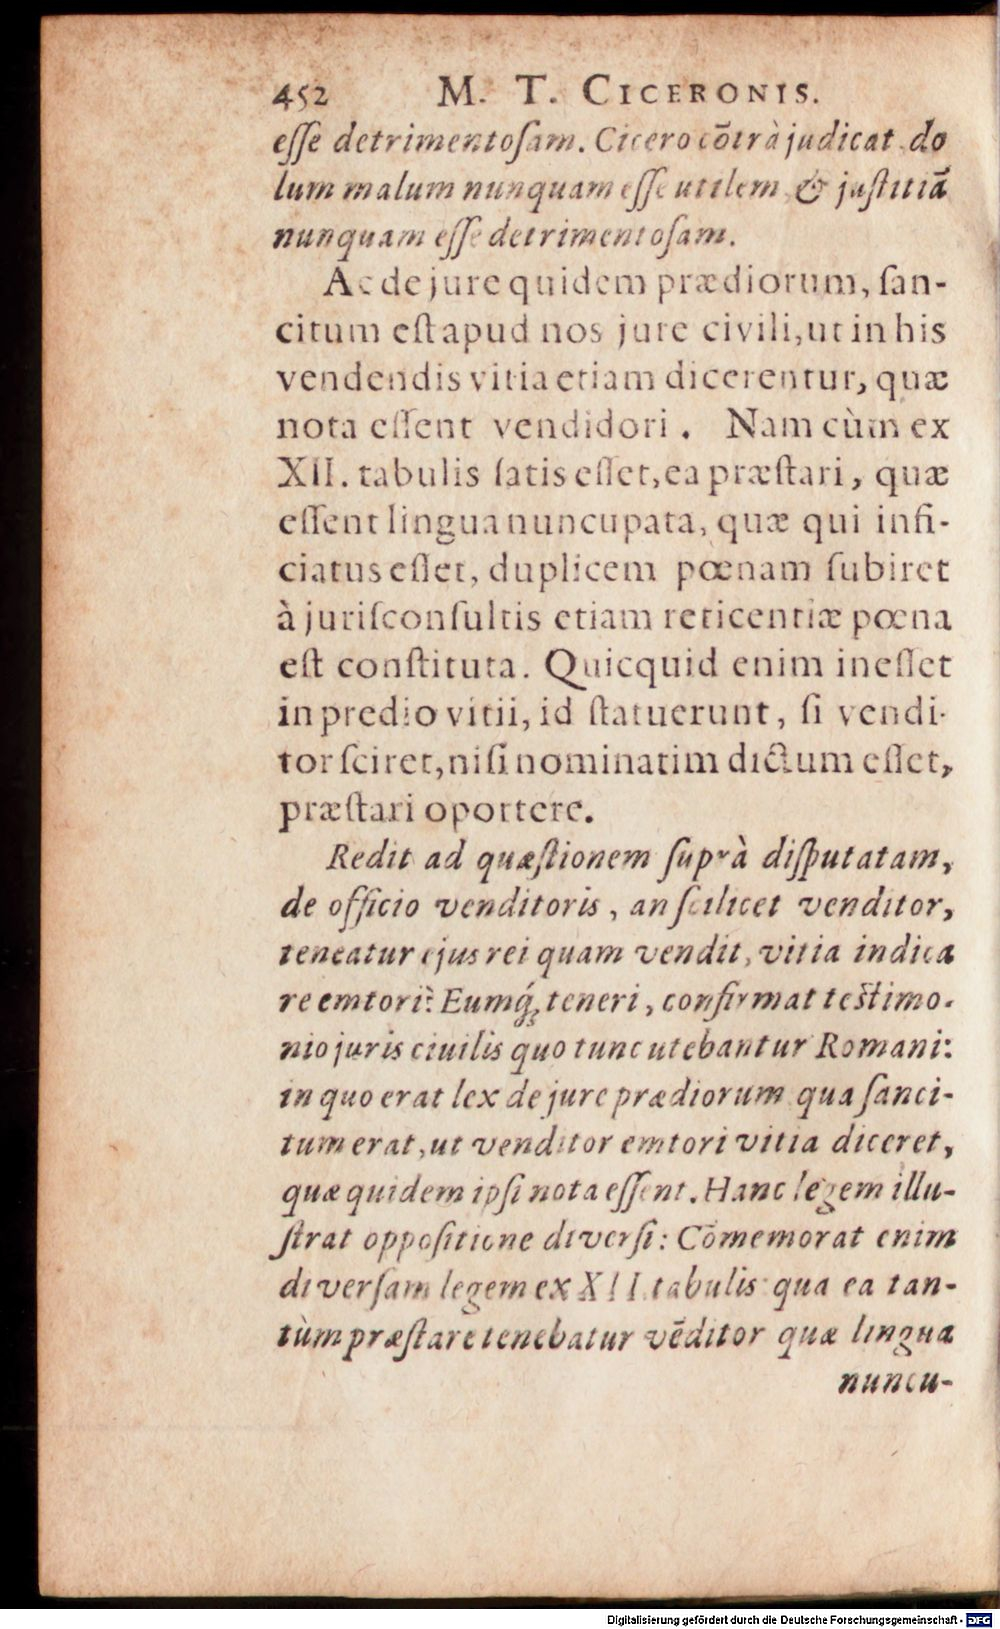 452 M. T. CICERONIS.
eſſe detrimentoſam. Cicero cōtrà judicat do
lum malum nunquam eſſe utilem & juſtitiā
nunquam eſſe detrimentoſam.
Ac de jure quidem prædiorum, ſan-
citum eſt apud nos jure civili, ut in his
vendendis vitia etiam dicerentur, quæ
nota eſſent vendidori. Nam cùm ex
XII. tabulis ſatis eſſet, ea præſtari, quæ
eſſent lingua nuncupata, quæ qui infi-
ciatus eſſet, duplicem pœnam ſubiret
à juriſconſultis etiam reticentiæ pœna
eſt conſtituta. Quicquid enim ineſſet
in predio vitii, id ſtatuerunt, ſi vendi-
tor ſciret, niſi nominatim dictum eſſet,
præſtari oportere.
Redit ad quæſtionem ſuprà diſputatam,
de officio venditoris, an ſcilicet venditor,
teneatur ejus rei quam vendit, vitia indica
re emtori? Eumq́; teneri, confirmat teſtimo-
nio juris ciuilis quo tunc utebantur Romani:
in quo erat lex de jure prædiorum qua ſanci-
tum erat, ut venditor emtori vitia diceret,
quæ quidem ipſi nota eſſent. Hanc legem illu-
ſtrat oppoſitione diverſi: Cōmemorat enim
diverſam legem ex XII tabulis qua ea tan-
tùm præſtare tenebatur vēditor quæ lingua
nuncu-
Digitalisierung gefördert durch die Deutsche Forschungsgemeinschaft - DFG